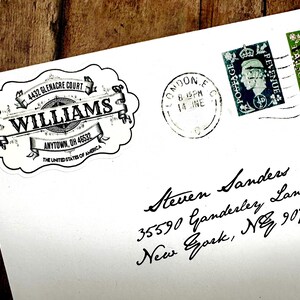 4432 GLENACRE COURT
WILLIAMS
ANYTOWN, OH 46532
THE UNITED STATES OF AMERICA
LONDON, E.C.
8.15PM
14 JNE
POSTAGE REVENUE
Steven Sanders
35590 Ganderley Lan
New York, NY 907